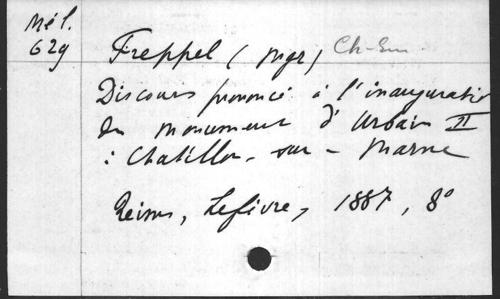 Mél.
629
Freppel (Mgr) Ch-Em
Discours prononcé à l'inauguration
du monument d'Urbain II
à Chatillon-sur-Marne
Reims, Lefèvre, 1887, 8°